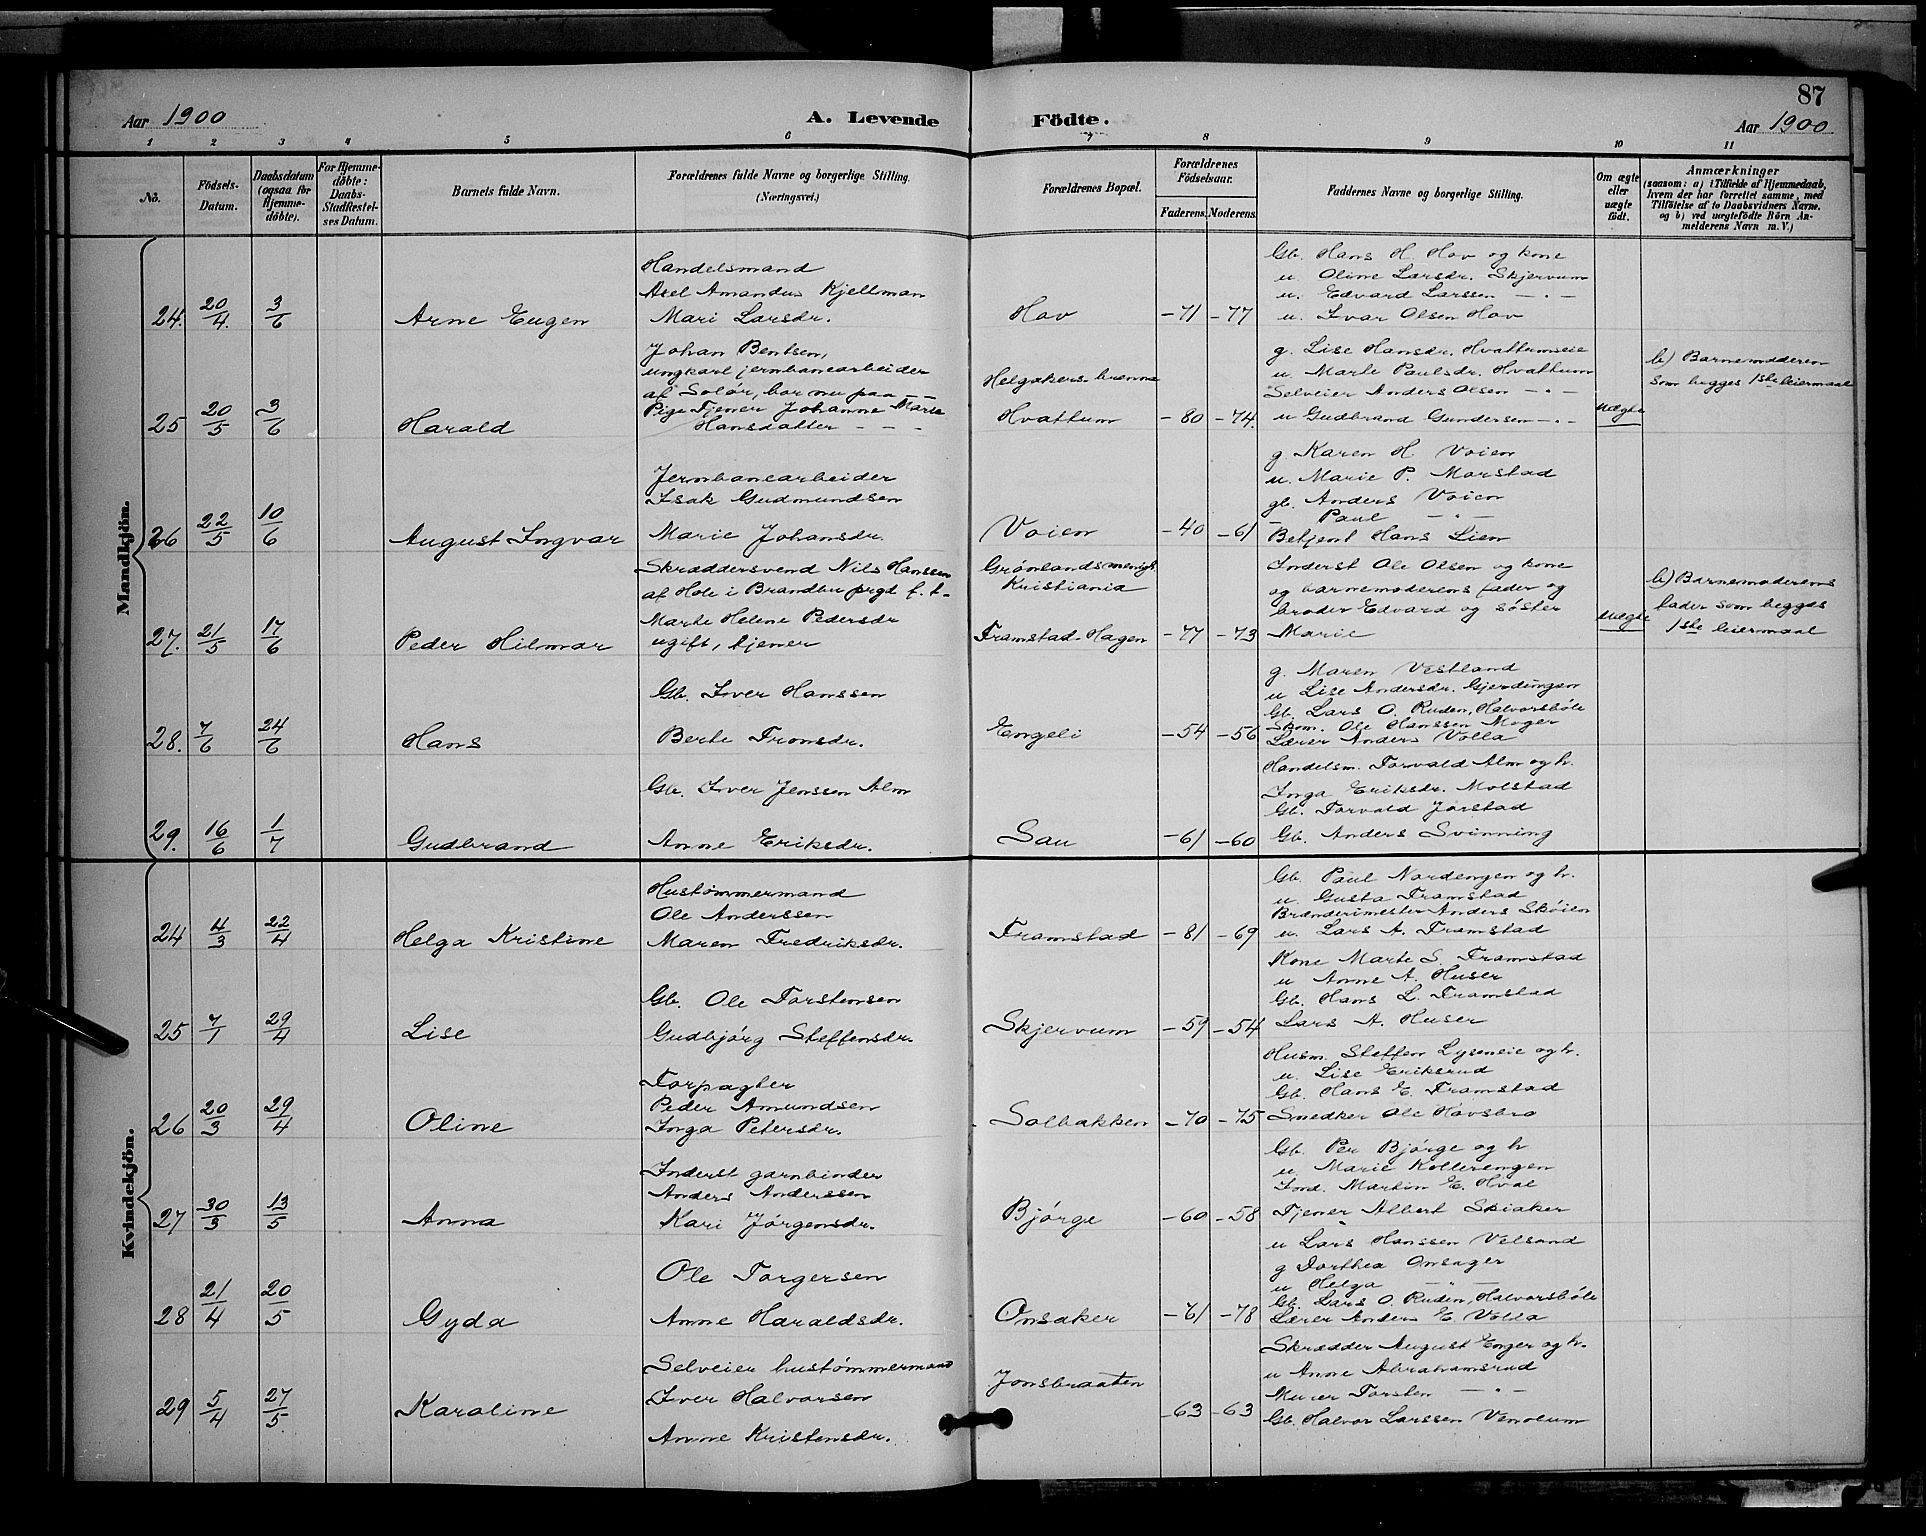 87
Aar 1900
A. Levende
Födte.
Aar 1900
1 2 3 4 5 6 7 8 9 10 11
No.
Födsels-Datum.
Daabsdatum (ogsaa for Hjemme-døbte).
For Hjemme-døbte: Daabs-Stadfæstel-ses Datum.
Barnets fulde Navn.
Forældrenes fulde Navne og borgerlige Stilling. (Næringsvei.)
Forældrenes Bopæl.
Forældrenes Födselsaar.
Faderens. Moderens.
Faddernes Navne og borgerlige Stilling.
Om ægte eller uægte födt.
Anmærkninger
(saasom: a) i Tilfælde af Hjemmedaab, hvem der har forrettet samme, med Tilföielse af to Daabsvidners Navne, og b) ved uægtefödte Börn An-melderens Navn m. V.)
Mandkjön.
24. 20/4. 3/6 Arne Eugen
Handelsmand
Axel Amandus Kjellman
Mari Larsdr.
Hov -71 -77
Gb. Hans H. Hov og kone
u. Oline Larsdr. Skjervum
u. Edvard Larssen — " —
u. Ivar Olsen Hov
25 20/5 3/6 Harald
Johan Bentsen,
ungkarl jernbanearbeider
af Solør, bor nu paa — —
Pige Tjener Johanne Marie
Hansdatter - - -
Helgakers-brænna
Hvattum -80 -74.
g. Lise Hansdr. Hvattumseie
u. Marte Paulsdr. Hvattum
Selveier Anders Olsen — " —
u Gudbrand Gundersen — " —
Uægte
b) Barnemoderen
som begges 1ste leiermaal
26 22/5 10/6 August Ingvar
Jernbanearbeider
Isak Gudmundsen
Marie Johansdr.
Voien -40 -61
g. Karen H. Voien
u. Marie P. Morstad
gb. Anders Voien
— Paul — " —
Betjent Hans Lien
27. 21/5 17/6 Peder Hilmar
Skræddersvend Nils Hanssen
af Hole i Brandbu prgd f. t.
Marte Helene Pedersdr
ugift, tjener
Grønlandsmenigh.
Kristiania
Framstad-Hagen -77 -73
Inderst Ole Olsen og kone
og barnemoderens fader og
broder Edvard og søster
Marie
Uægte
b) Barnemoderens
fader som begges
1ste leiermaal
28. 7/6 24/6 Hans
Gb. Iver Hanssen
Berte Tronsdr.
Engeli -54 -56
g. Maren Vestland
u Lise Andersdr. Gjerdingen
Gb. Lars O. Ruden, Halvorsböle
Skom. Ole Hanssen Moger
Lærer Anders Volla
29. 16/6 1/7 Gudbrand
Gb. Iver Jenssen Alm
Anne Eriksdr.
Sau -61 -60
Handelsm. Torvald Alm og h.
Inga Eriksdr. Molstad
Gb. Torvald Jorstad
Gb. Anders Svinning
Kvindekjön.
24 4/3 22/4 Helga Kristine
Hustømmermand
Ole Anderssen
Maren Fredriksdr.
Framstad -81 -69
Gb. Paul Nordengen og h.
u. Gusta Framstad
Brænderimester Anders Skøien
u. Lars A. Framstad
25 7/1 29/4 Lise
Gb. Ole Torstensen
Gudbjørg Steffensdr.
Skjervum -59 -54
Kone Marte S. Framstad
u Anne A. Huser
Gb. Hans L. Framstad
Lars A. Huser
26 20/3 29/4 Oline
Forpagter
Peder Amundsen
Inga Petersdr.
Solbakken -70 -75
Husm. Steffen Lyseneie og h.
u. Lise Eriksrud
Gb. Hans E. Framstad
Snedker Ole Hovsbro
27 30/3 13/5 Anna
Inderst garnbinder
Anders Anderssen
Kari Jörgensdr.
Bjørge -60 -58
Gb. Per Bjørge og h
u. Marie Kollerengen
Ind. Martin E. Hval
Tjener Albert Skiaker
28 21/4 20/5 Gyda
Ole Torgersen
Anne Haraldsdr.
Onsaker -61 -78
u Lars Hanssen Velsand
g Dorthea Onsager
u Helga — " —
Gb. Lars O. Ruden, Halvorsböle
Lærer Anders E. Volla
29 5/4 27/5 Karoline
Selveier hustømmermand
Iver Halvorsen
Anne Kristensdr.
Jonsbraaten
-63 -63
Skrædder August Enger og h.
u Anne Abrahamsrud
Murer Torsten — " —
Gb. Halvor Larssen Venolum